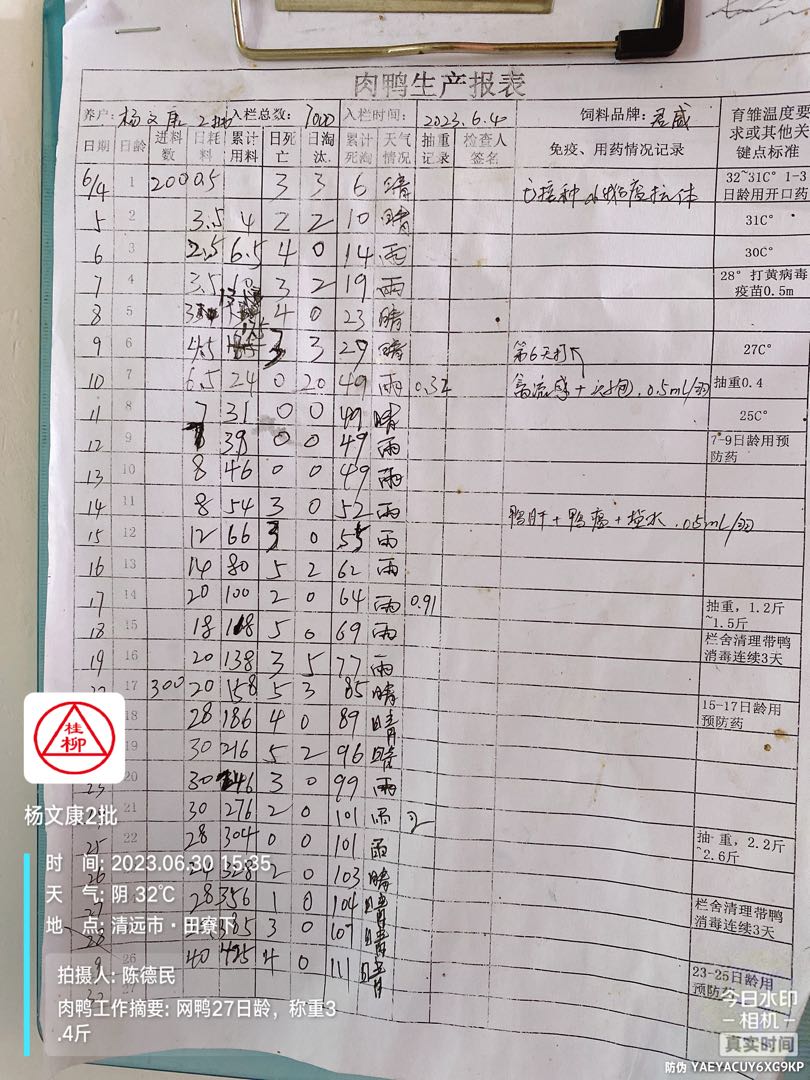 肉鸭生产报表
养户: 杨文康 2批 入栏总数: 7000 入栏时间: 2023.6.4 饲料品牌: 育雏温度要求或其他关键点标准
日期 日龄 进料数 日耗料 累计用料 日死亡 日淘汰 累计死淘 天气情况 抽重记录 检查人签名 免疫、用药情况记录
6/4 1 200 0.5 3 3 6 晴 32~31C° 1-3日龄用开口药
5 2 3.5 4 2 2 10 晴 31C°
6 3 2.5 6.5 4 0 14 雨 30C°
7 4 3.5 3 2 19 雨 28° 打黄病毒疫苗0.5m
8 5 4 0 23 晴
9 6 4.5 3 3 29 晴 第6天打 27C°
10 7 6.5 24 0 20 49 雨 0.32 禽流感+ .0.5mL/羽 抽重0.4
11 8 7 31 0 0 49 晴 25C°
12 9 39 0 0 49 雨 7-9日龄用预防药
13 10 8 46 0 0 49 雨
14 11 8 54 3 0 52 雨 鸭肝+鸭瘟+ .05mL/羽
15 12 12 66 3 0 55 雨
16 13 14 80 5 2 62 雨
17 14 20 100 2 0 64 雨 0.91 抽重，1.2斤~1.5斤
18 15 18 118 5 0 69 雨 栏舍清理带鸭消毒连续3天
19 16 20 138 3 5 77 雨
17 300 20 158 5 3 85 晴 15-17日龄用预防药
18 28 186 4 0 89 晴
19 30 216 5 2 96 晴
20 30 246 3 0 99 雨
21 30 276 2 0 101 雨
22 28 304 0 0 101 雨 抽 重，2.2斤~2.6斤
24 328 2 0 103 晴
28 356 1 0 104 晴 栏舍清理带鸭消毒连续3天
385 3 0 107 晴
26 40 425 4 0 111 晴 23-25日龄用预防药
桂柳
杨文康2批
时 间: 2023.06.30 15:35
天 气: 阴 32℃
地 点: 清远市·田寮下
拍摄人: 陈德民
肉鸭工作摘要: 网鸭27日龄，称重3
.4斤
今日水印
-相机-
真实时间
防伪 YAEYACUY6XG9KP